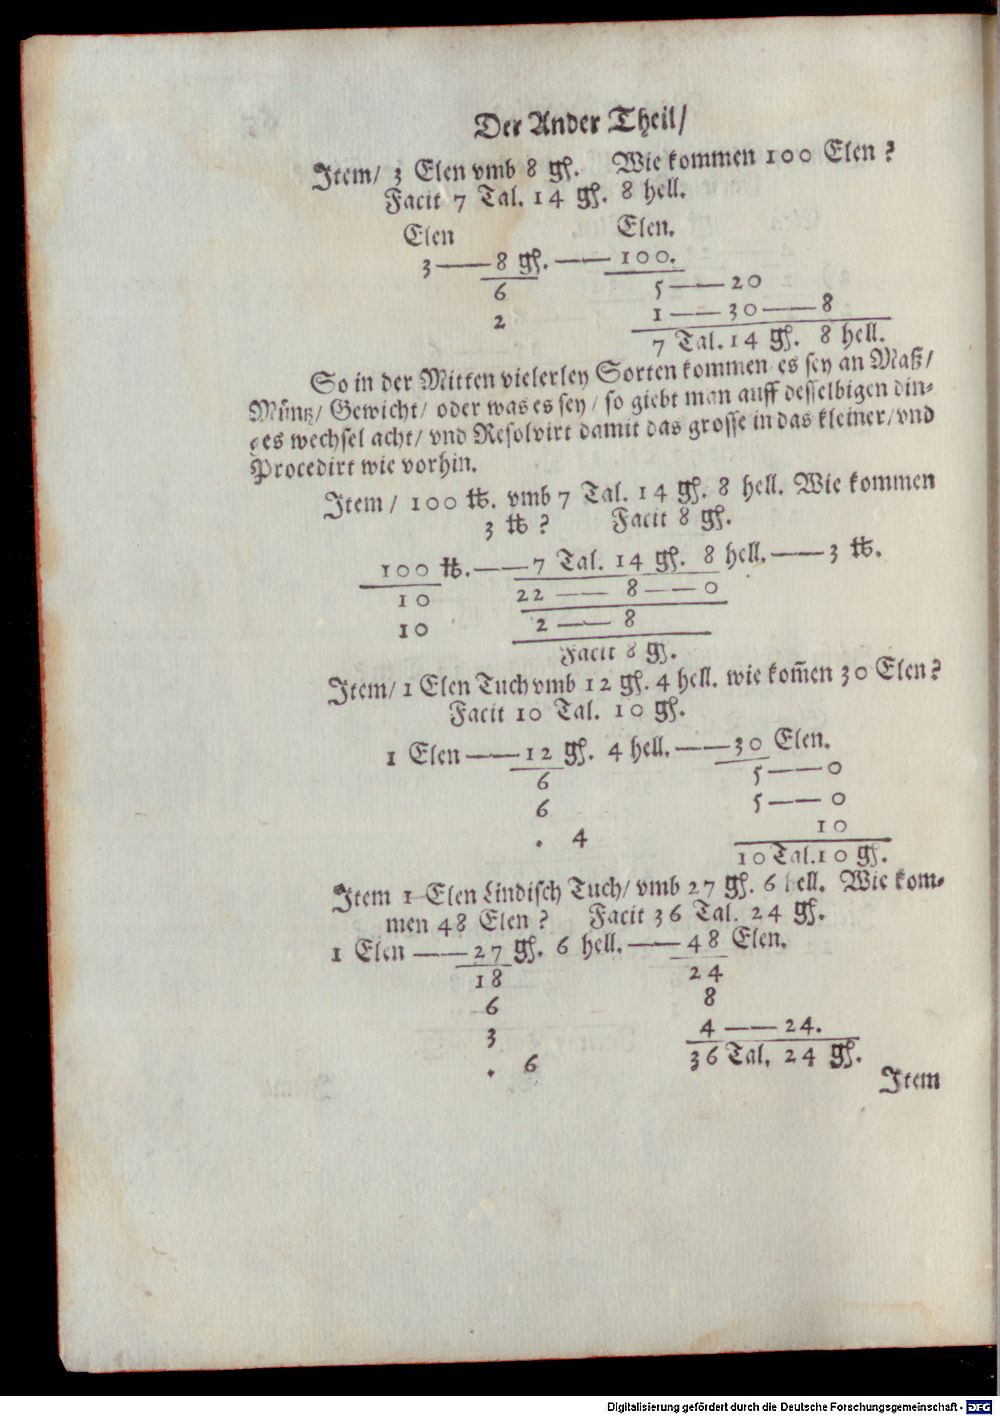 Der Ander Theil/
Item/ 3 Elen vmb 8 gſ. Wie kommen 100 Elen?
Facit 7 Tal. 14 gſ. 8 hell.
Elen Elen.
3 —— 8 gſ. —— 100.
6 5 —— 20
2 1 —— 30 —— 8
7 Tal. 14 gſ. 8 hell.
So in der Mitten vielerley Sorten kommen es sey an Maß/
Müntz/ Gewicht/ oder was es sey/ so giebt man auff desselbigen din-
ges wechsel acht/ vnd Resolvirt damit das grosse in das kleiner/ vnd
Procedirt wie vorhin.
Item/ 100 ℔. vmb 7 Tal. 14 gſ. 8 hell. Wie kommen
3 ℔? Facit 8 gſ.
100 ℔. —— 7 Tal. 14 gſ. 8 hell. —— 3 ℔.
10 22 —— 8 —— 0
10 2 —— 8
Facit 8 gſ.
Item/ 1 Elen Tuch vmb 12 gſ. 4 hell. wie kom̃en 30 Elen?
Facit 10 Tal. 10 gſ.
1 Elen —— 12 gſ. 4 hell. —— 30 Elen.
6 5 —— 0
6 5 —— 0
. 4 10
10 Tal. 10 gſ.
Item 1 Elen Lindisch Tuch/ vmb 27 gſ. 6 hell. Wie kom-
men 48 Elen? Facit 36 Tal. 24 gſ.
1 Elen —— 27 gſ. 6 hell. —— 48 Elen.
18 24
6 8
3 4 —— 24.
. 6 36 Tal. 24 gſ.
Item
Digitalisierung gefördert durch die Deutsche Forschungsgemeinschaft - DFG